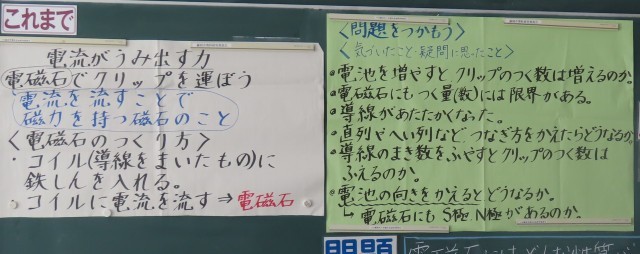 これまで
電流がうみ出す力
電磁石でクリップを運ぼう
電流を流すことで
磁力を持つ磁石のこと
〈電磁石のつくり方〉
・コイル(導線をまいたもの)に
鉄しんを入れる。
・コイルに電流を流す⇒電磁石
〈問題をつかもう〉
〈気づいたこと・疑問に思ったこと〉
・電池を増やすと、クリップのつく数は増えるのか。
・電磁石にもつく量(数)には限界がある。
・導線があたたかくなった。
・直列やへい列など、つなぎ方をかえたらどうなるか。
・導線のまき数をふやすとクリップのつく数は
ふえるのか。
・電池の向きをかえるとどうなるか。
↳電磁石にもS極N極があるのか。
問題
電磁石には